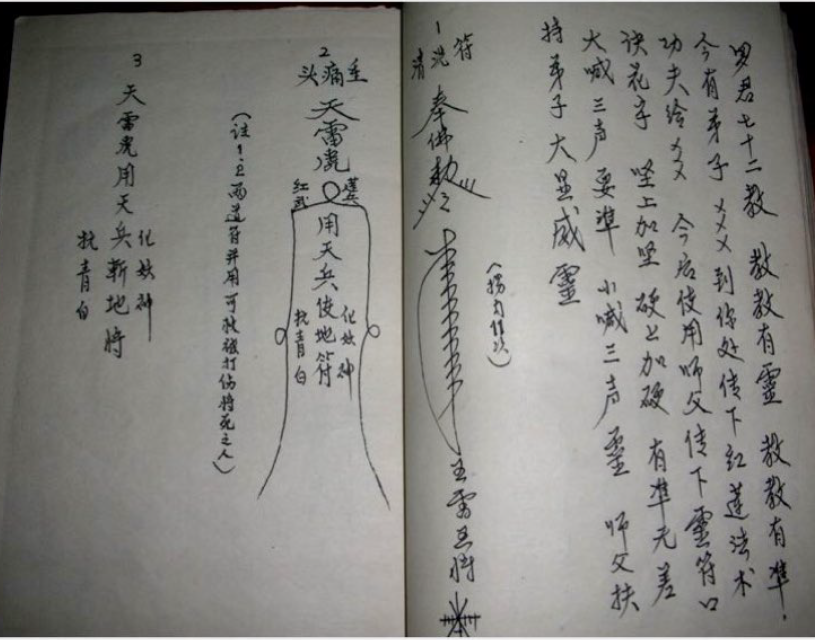 罗君七十二教 教教有靈 教教有準.
今有弟子 ××× 到你处传下红莲法术
功夫给×× 今后使用师父传下靈符口
诀花字 坚上加坚 硬上加硬 有準无差
大喊三声 要準 小喊三声 靈 师父扶
持弟子大显威靈
1
清洗符
奉佛勅令
2
头痛
天雷
用天兵使地符
化妖神
青白
(注1.2两道符并用可救被打伤将死之人)
3
天雷
用天兵斬地将
化妖神
青白